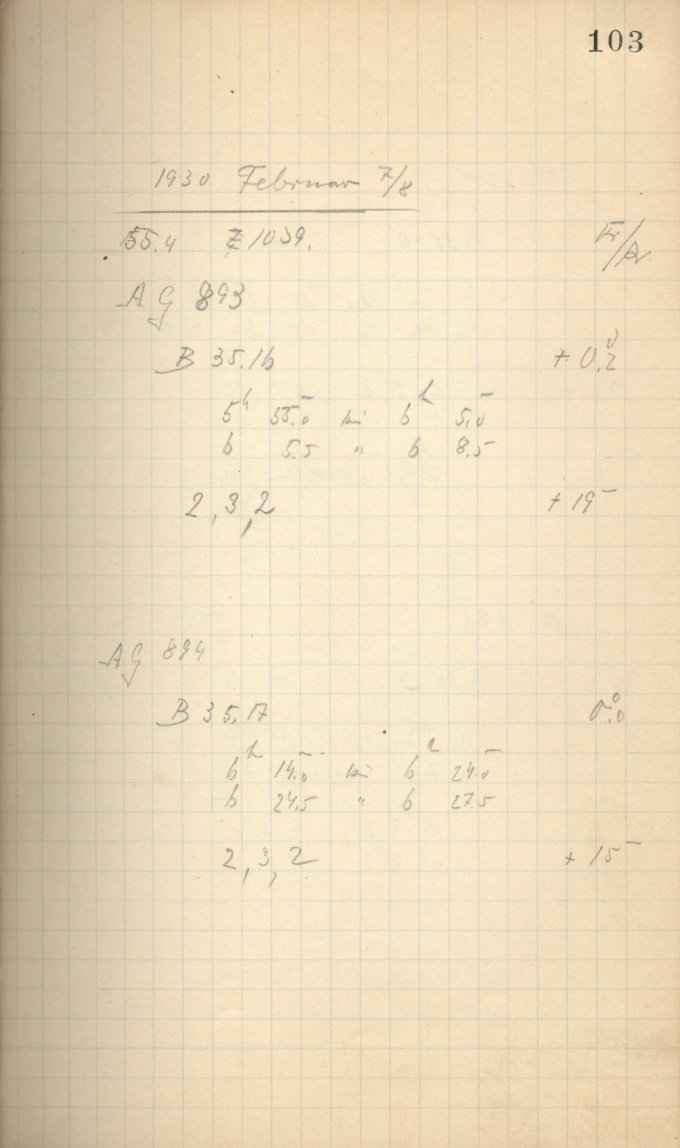 103
1930 Februar 7/8
55.4 Z 1039.
AG 893
B 35.16 + 0.°2
5h 55.0 bis 6h 5.0
6 5.5 " 6 8.5
2, 3, 2 + 19
AG 894
B 35.17 0.°0
6h 14.0 bis 6h 24.0
6 24.5 " 6 27.5
2, 3, 2 + 15